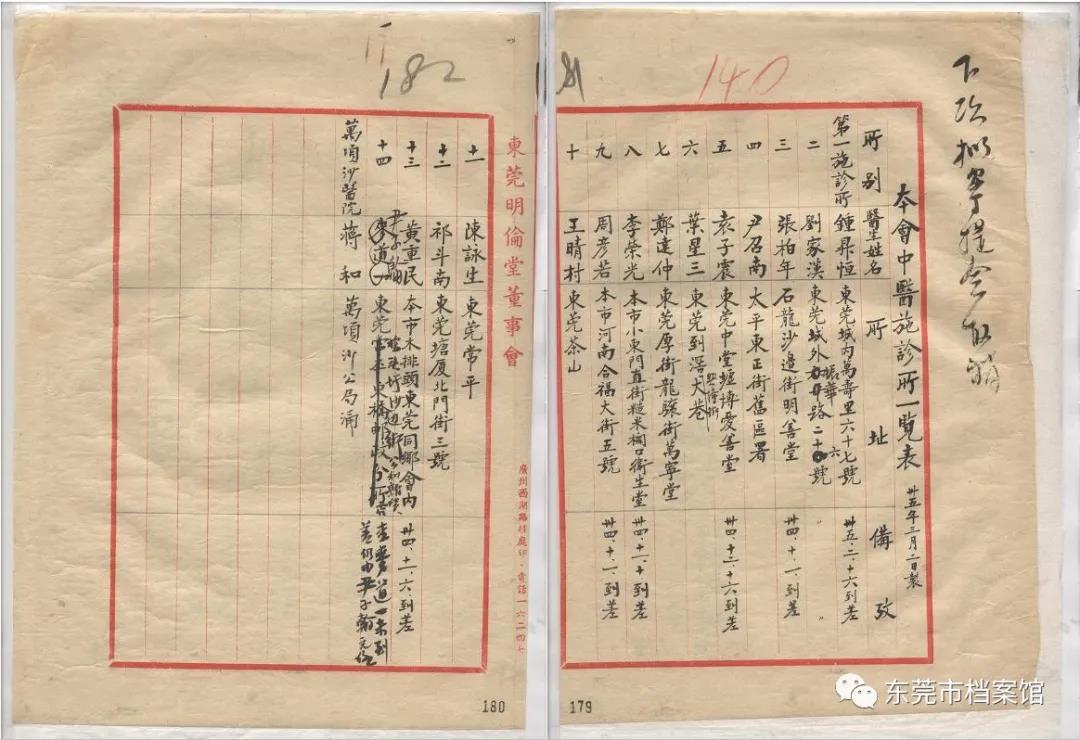 140
本會中醫施診所一覽表 卅五年三月二日製
所別 醫生姓名 所址 備攷
第一施診所 鍾鼎恒 東莞城内萬壽里六十七號 卅五、二、十六到差
二 劉家漢 東莞城外振華路二十六號 〃
三 張柏年 石龍沙邊街明善堂 卅四、十一、一到差
四 尹召南 太平東正街舊區署
五 袁子震 東莞中堂墟博愛善堂 卅四、十二、十六到差
六 葉星三 東莞到滘大巷
七 鄭達仲 東莞厚街龍驤街萬寧堂
八 李榮光 本市小東門直街糙米欄口衛生堂 卅四、十一、十到差
九 周彥若 本市河南合福大街五號 卅四、十一、一到差
十 王晴村 東莞茶山
179
182
東莞明倫堂董事會
廣州西湖路 印·電話一六二四七
十一 陳詠生 東莞常平
十二 祁斗南 東莞塘厦北門街三號
十三 黄重民 本市木排頭東莞同鄉會内 卅四、十一、六、到差
十四 尹子翰 東莞
萬頃沙醫院 蔣和 萬頃沙公局涌
180
东莞市档案馆